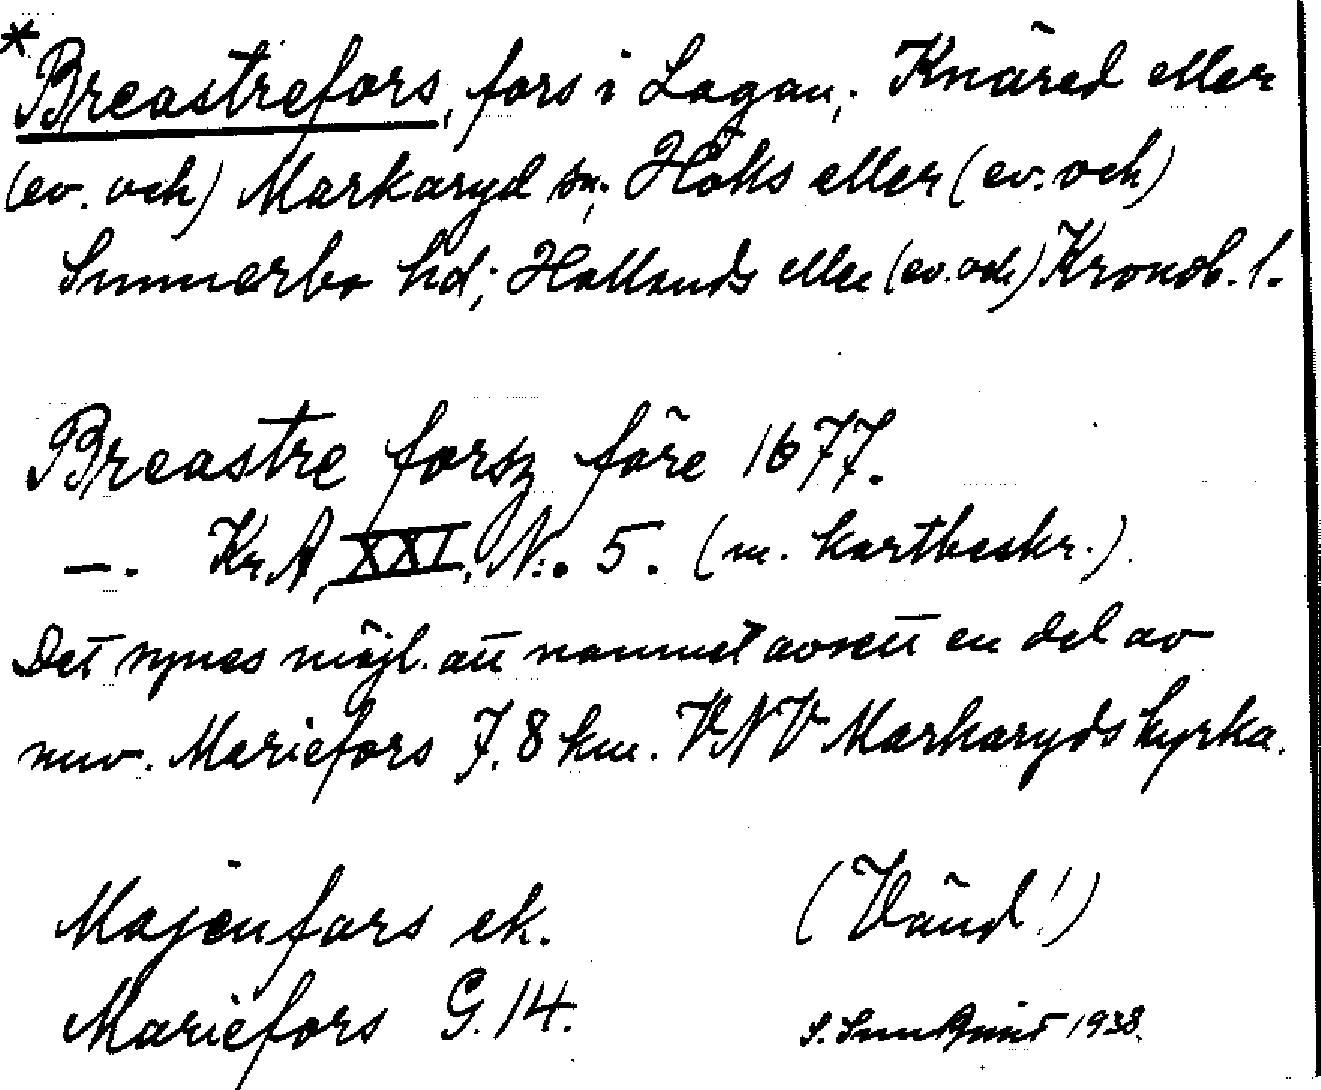 *Breastrefors, fors i Lagan; Knäred eller
(ev. och) Markaryd sn; Höks eller (ev. och)
Sunnerbo hd; Hallands eller (ev. och) Kronob. l.
Breastre forsz före 1677.
—. Kr.A, XXI, N:o 5. (m. kartbeskr.).
Det synes möjl. att namnet avsett en del av
nuv. Mariefors 7.8 km. VNV Markaryds kyrka.
Majenfors ek.
(Vänd!)
Mariefors G. 14.
S. Sundquist 1938.